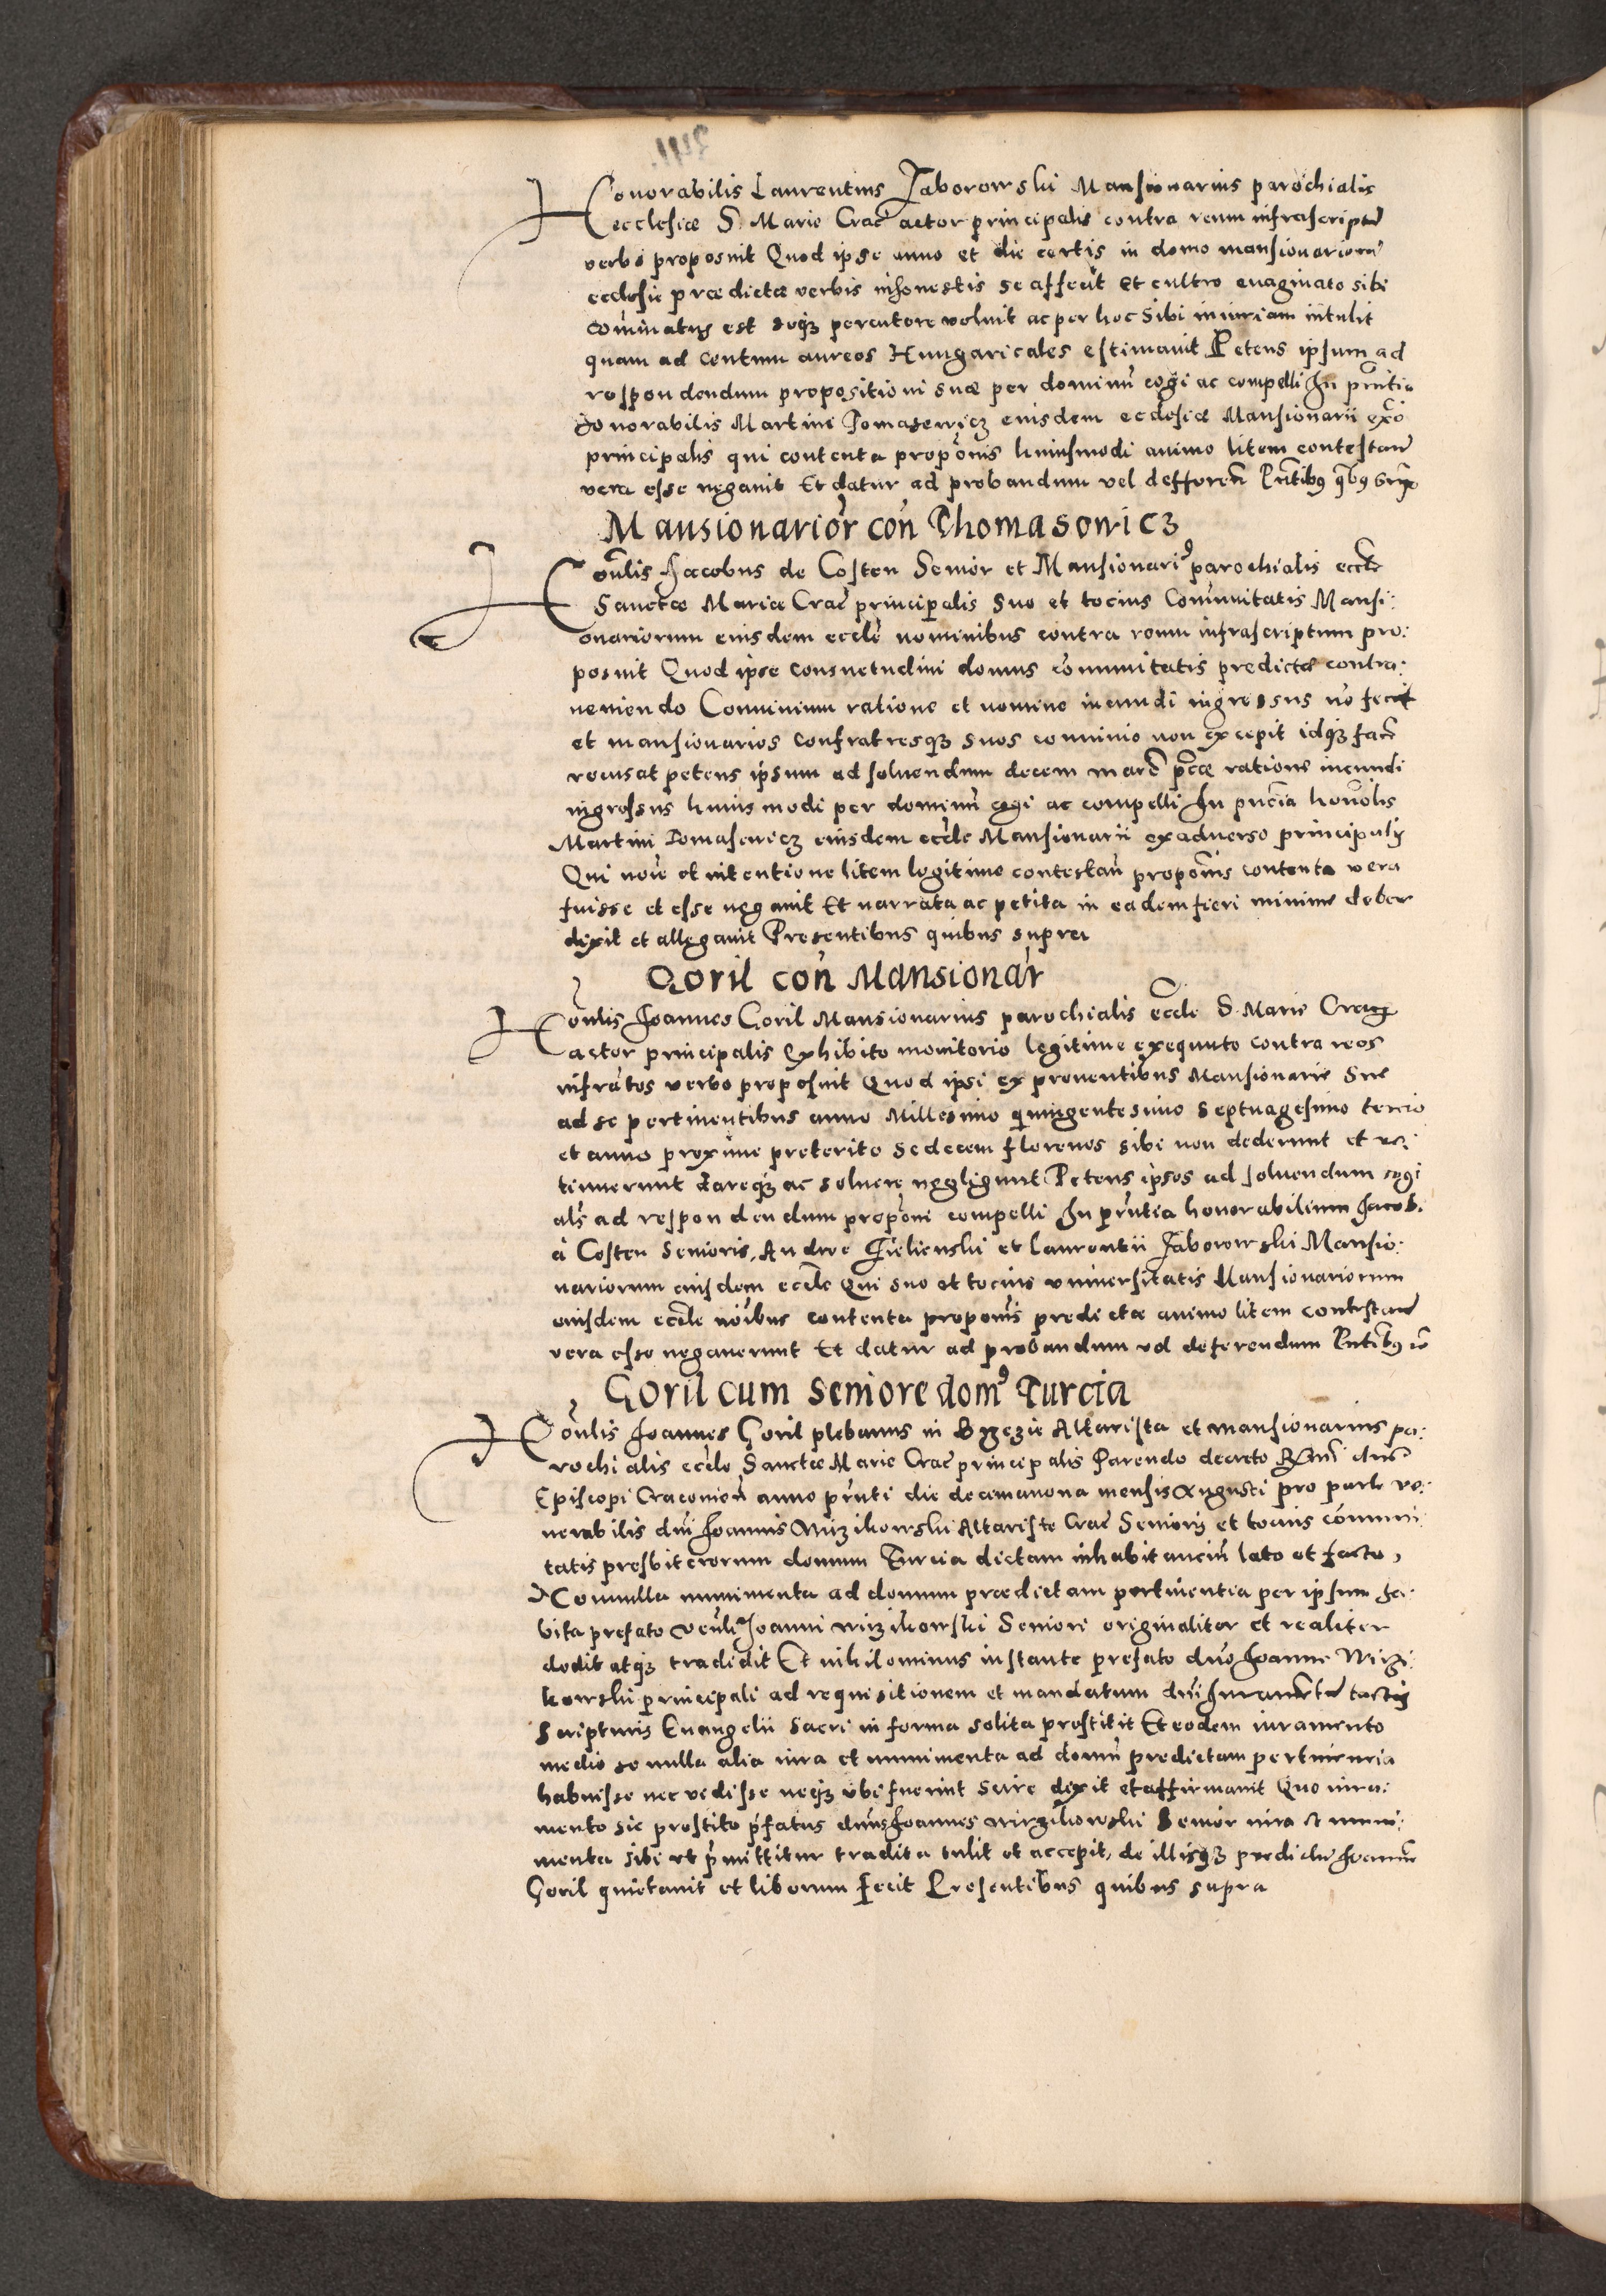 Honorabilis Laurentius Jaborowski Mansionarius parochialis
ecclesiæ S. Marie Crac̃ actor principalis contra reum infrascriptũ
verbo proposuit Quod ipse anno et die certis in domo mansionariorũ
ecclesie prædictæ verbis inhonestis se affecit et cultro euaginato sibi
com̃inatus est seq3 percutere voluit ac per hoc sibi iniuriam intulit
quam ad centum aureos Hungaricales estimauit Petens ipsum ad
respondendum propositioni suæ per dominũ cogi ac compelli In pñtia
honorabilis Martini Tomasewicz eiusdem ecclesiæ Mansionarii exõ
principalis qui contenta propõnis huiusmodi animo litem contestañ
vera esse negauit Et datur ad probandum vel defferen̄ Pñtibus qbus supra
Mansionarior̃ coñ Thomasowicz
Hoñlis Jacobus de Costen Senior et Mansionari9 parochialis eccle
Sanctæ Mariæ Crac̃ principalis suo et tocius Com̃unitatis Mansi:
onariorum eiusdem eccle nominibus contra reum infrascriptum pro:
posuit Quod ipse consuetudini domus com̃unitatis predictæ contra:
ueniendo Conuiuium ratione et nomine iucundi ingressus nõ fecit
et mansionarios confratresq3 suos conuiuio non excepit idq3 facẽ
recusat petens ipsum ad soluendum decem marc̃ pccæ ratione iucundi
ingressus huiusmodi per dominũ cogi ac compelli In pñcia honõlis
Martini Tomasewicz eiusdem eccle Mansionarii ex aduerso principalis
Qui noĩe et intentione litem legitime contestañ propõnis contenta vera
fuisse et esse negauit Et narrata ac petita in eadem fieri minime deber
dixit et allegauit Presentibus quibus supra
Goril coñ Mansionar̃
Hoñlis Joannes Goril Mansionarius parochialis eccle S. Marie Crac
actor principalis exhibito monitorio legitime exequuto contra reos
infratos verbo proposuit Quod ipsi ex prouentibus Mansionarie sue
ad se pertinentibus anno Millesimo quingentesimo septuagesimo tercio
et anno proxime preterito sedecem florenos sibi non dederunt et re:
tinuerunt dareq3 ac soluere negligunt Petens ipsos ad soluendum cogi
als ad respondendum propõni compelli In pñtia honorabilium Jacobi
à Costen Senioris, Andree Gielienski et Laurentii Jaborowski Mansio:
nariorum eiusdem eccle Qui suo et tocius vniuersitatis Mansionariorum
eiusdem eccle noĩbus contenta propõnis predictæ animo litem contestañ
vera esse negauerunt Et datur ad probandum vel deferendum Pñtibus
Goril cum Seniore dom9 Turcia
Hoñlis Joannes Goril plebanus in Bzezie Altarista et mansionarius pa:
rochialis eccle Sanctæ Marie Crac̃ principalis Parendo decreto Rñdi dñi
Episcopi Cracouieñ anno pñti die decimanona mensis Augusti pro parte ve:
nerabilis dñi Joannis Mirzikowski Altariste Crac̃ Senioris et tocius com̃uni:
tatis presbiterorum domum Turcia dictam inhabitanciũ lato et facto,
Nonnulla munimenta ad domum prædictam pertinentia per ipsum ha:
bita prefato Venĩli Joanni Mirzikowski Seniori originaliter et realiter
dedit atq3 tradidit Et nihilominus instante prefato dño Joanne Mirzi:
kowski principali ad requisitionem et mandatum dñi Juramentũ tactis
Scripturis Euangelii Sacri in forma solita prestitit Et eodem iuramento
medio se nulla alia iura et munimenta ad domũ predictam pertinencia
habuisse nec vedisse neq3 vbi fuerint scire dixit et affirmauit Quo iura:
mento sic prestito pfatus dñus Joannes Mirzikowski Senior iura et muni:
menta sibi vt pmittitur tradita tulit et accepit, de illisq3 predictũ Joannẽ
Goril quietauit et liberum fecit Presentibus quibus supra